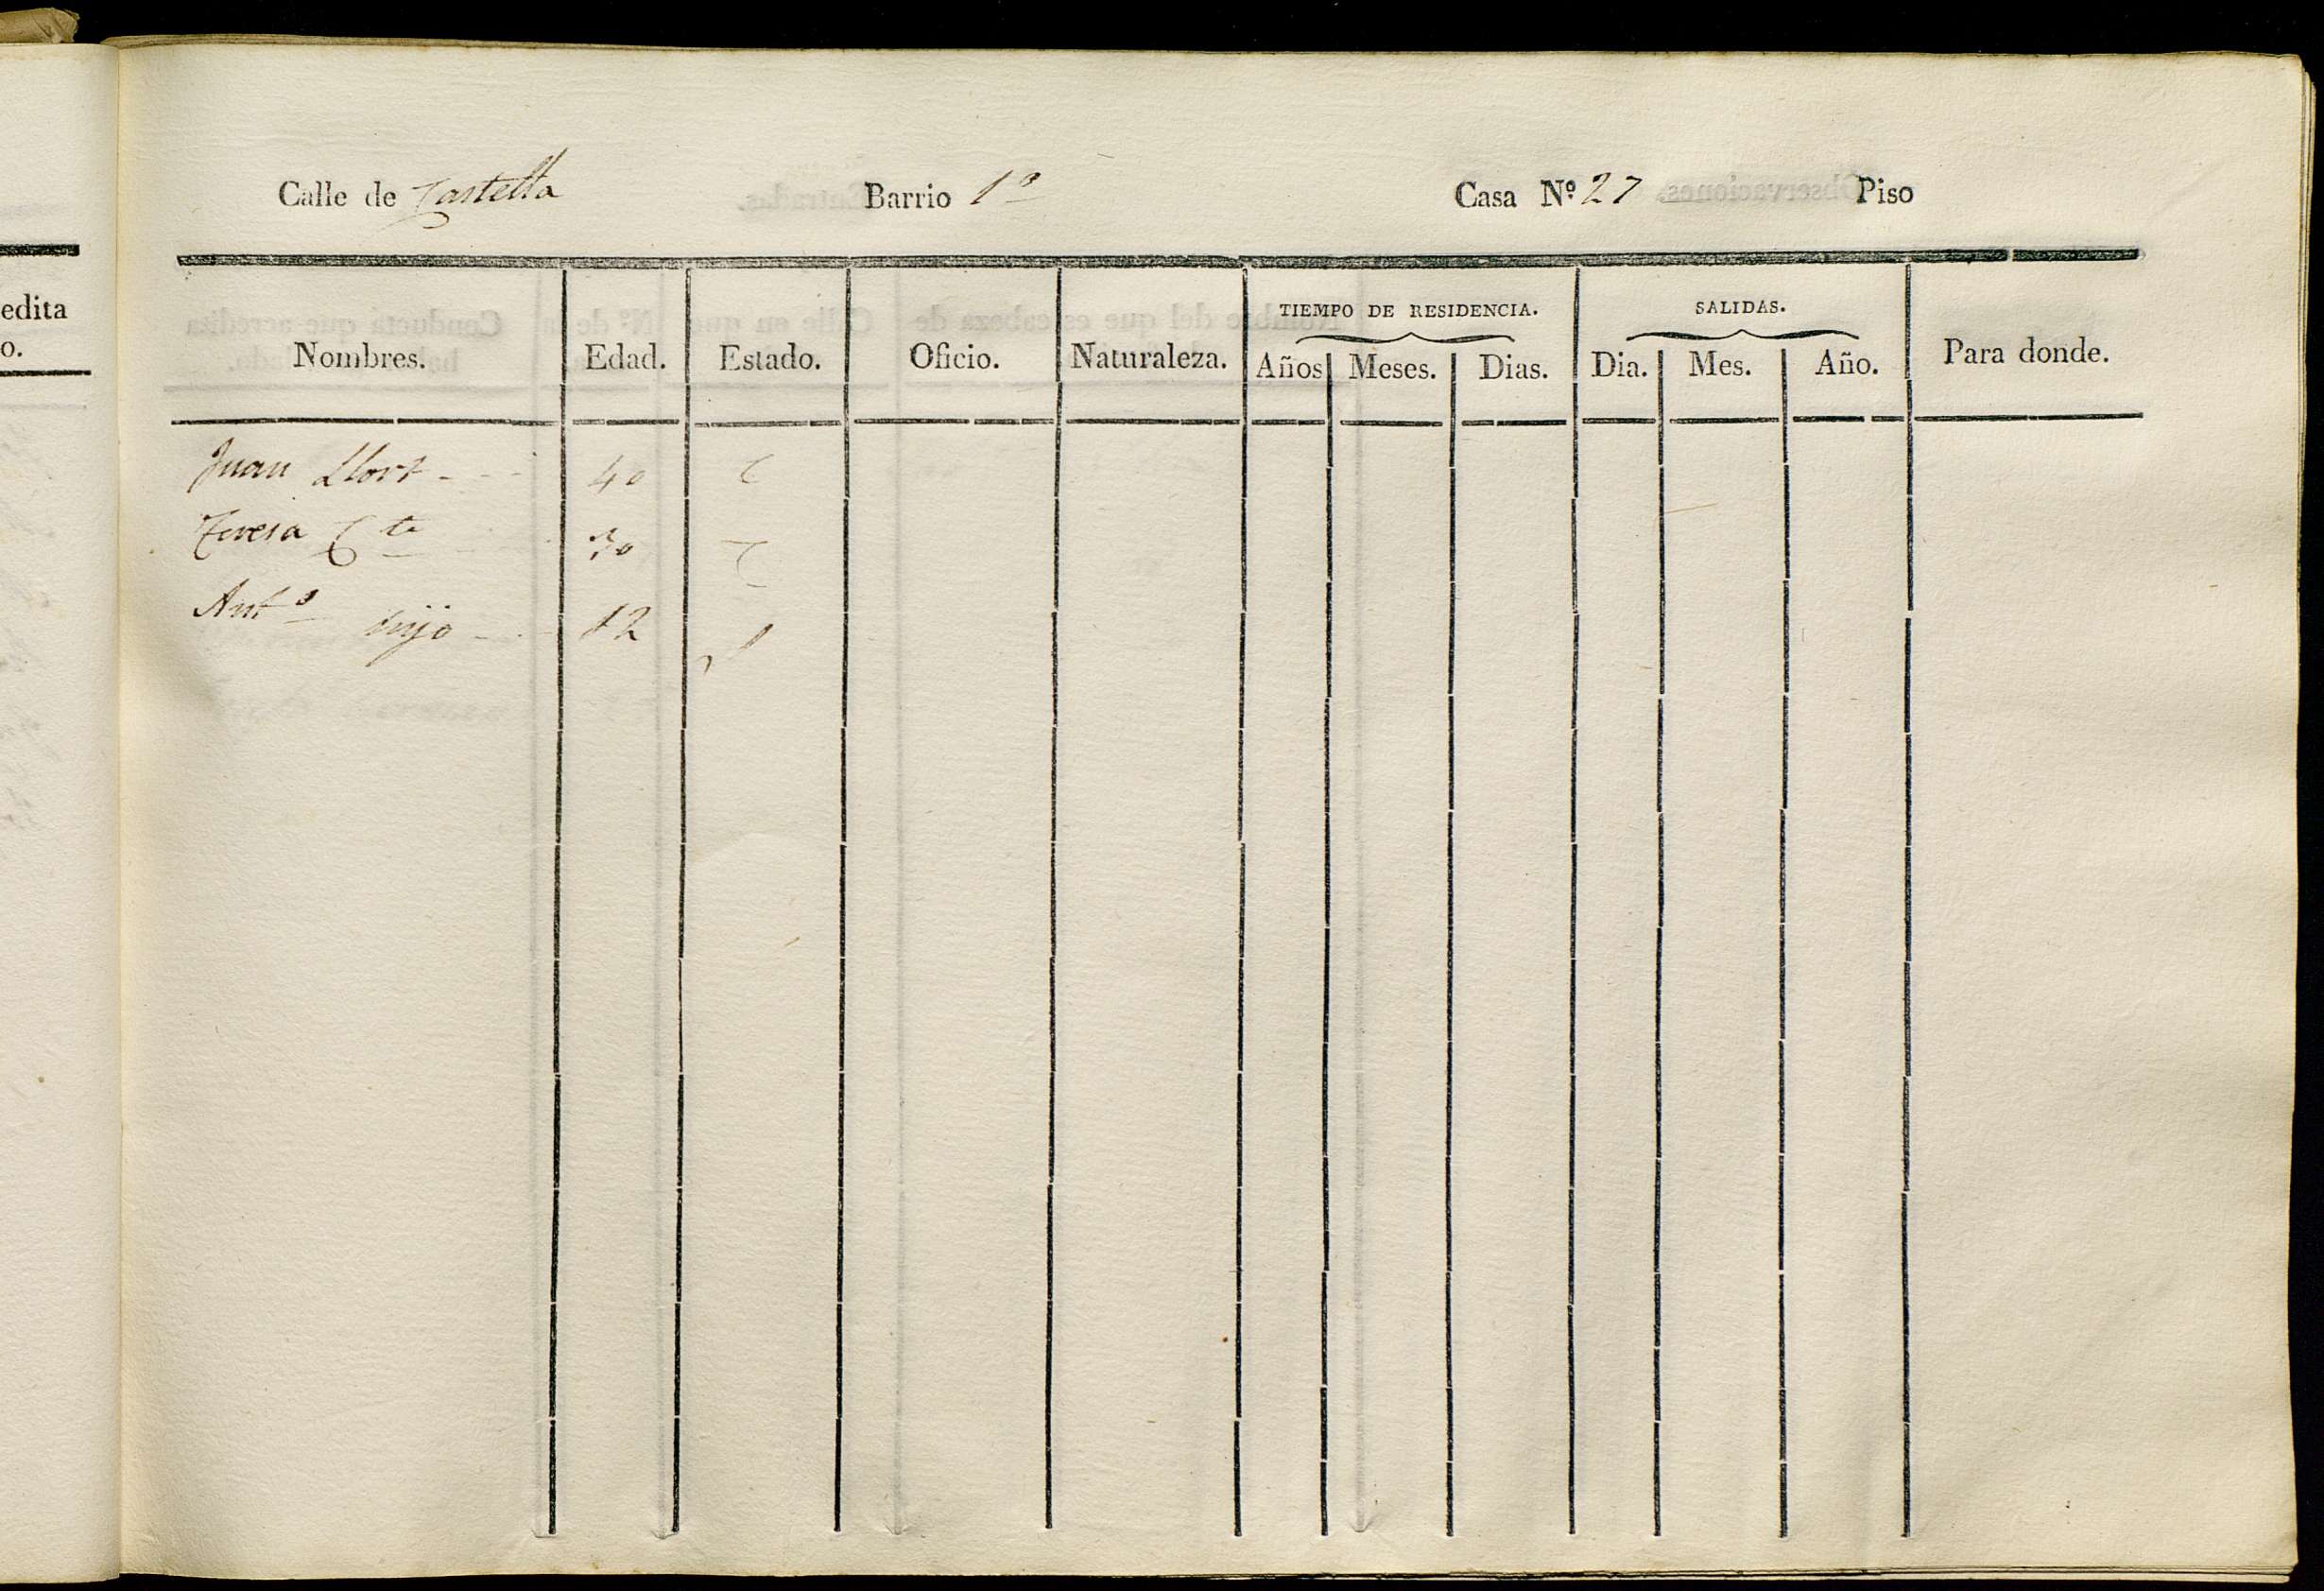 Calle de Castella Barrio 1º Casa Nº 27 Piso
edita
o.
Nombres. Edad. Estado. Oficio. Naturaleza. TIEMPO DE RESIDENCIA. Años Meses. Dias. SALIDAS. Dia. Mes. Año. Para donde.
Juan Llort 40 C
Teresa Cta 30 C
Antº hijo 12